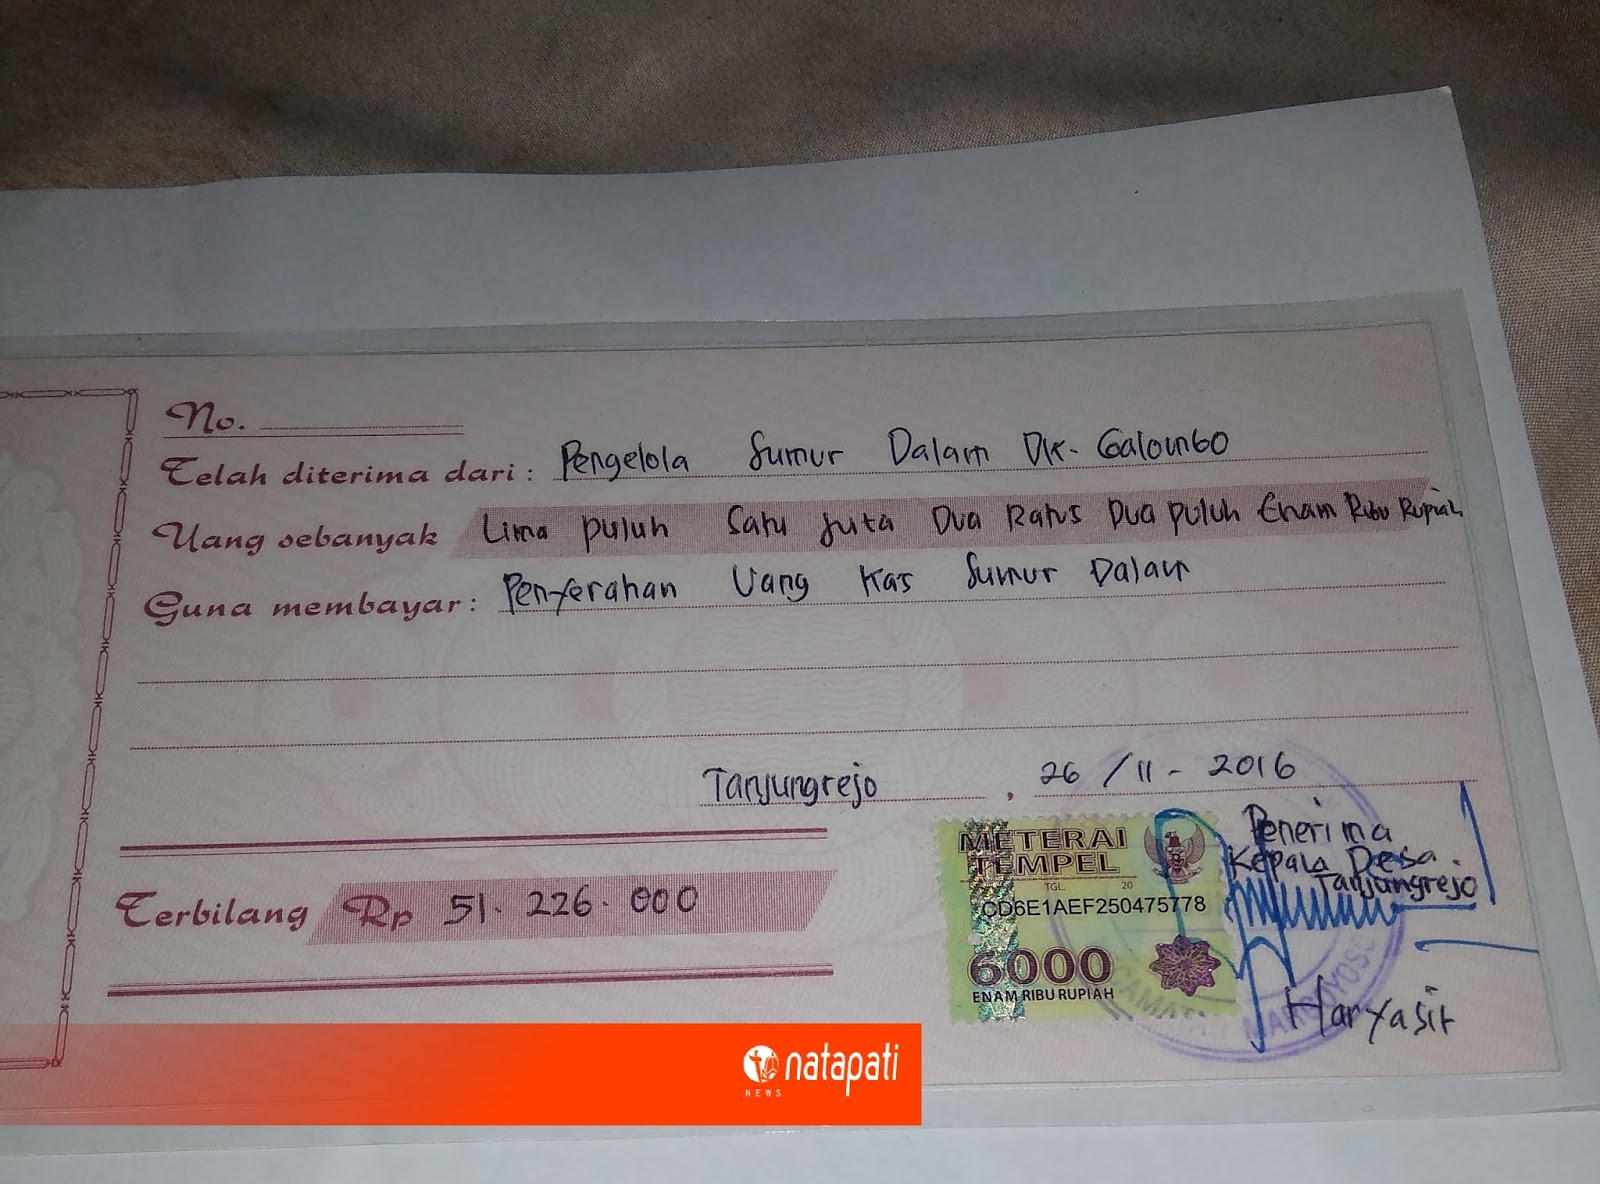 No.
Telah diterima dari : Pengelola Sumur Dalam Dk. Galoungo
Uang sebanyak Lima puluh Satu Juta Dua Ratus Dua puluh Enam Ribu Rupiah
Guna membayar : Penyerahan Uang Kas Sumur Dalam
Tanjungrejo , 26 / 11 - 2016
Penerima
Kepala Desa
Tanjungrejo
METERAI
TEMPEL
TGL. 20
CD6E1AEF250475778
6000
ENAM RIBU RUPIAH
Terbilang Rp 51.226.000
Haryasit
natapati
NEWS